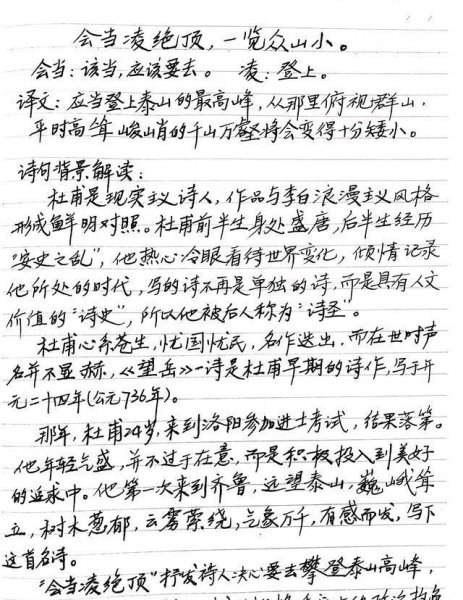 会当凌绝顶，一览众山小。
会当：该当，应该要去。 凌：登上。
译文：应当登上泰山的最高峰，从那里俯视群山，
平时高耸峻峭的千山万壑将会变得十分矮小。
诗句背景解读：
杜甫是现实主义诗人，作品与李白浪漫主义风格
形成鲜明对照。杜甫前半生身处盛唐，后半生经历
“安史之乱”，他热心冷眼看待世界变化，倾情记录
他所处的时代，写的诗不再是单独的诗，而是具有人文
价值的“诗史”，所以他被后人称为“诗圣”。
杜甫心系苍生，忧国忧民，名作迭出，而在世时声
名并不显赫，《望岳》一诗是杜甫早期的诗作，写于开
元二十四年(公元736年)。
那年，杜甫24岁，来到洛阳参加进士考试，结果落第。
他年轻气盛，并不过于在意，而是积极投入到美好
的追求中。他第一次来到齐鲁，远望泰山，巍峨耸
立，树木葱郁，云雾萦绕，气象万千，有感而发，写下
这首名诗。
“会当凌绝顶”抒发诗人决心要去攀登泰山高峰，